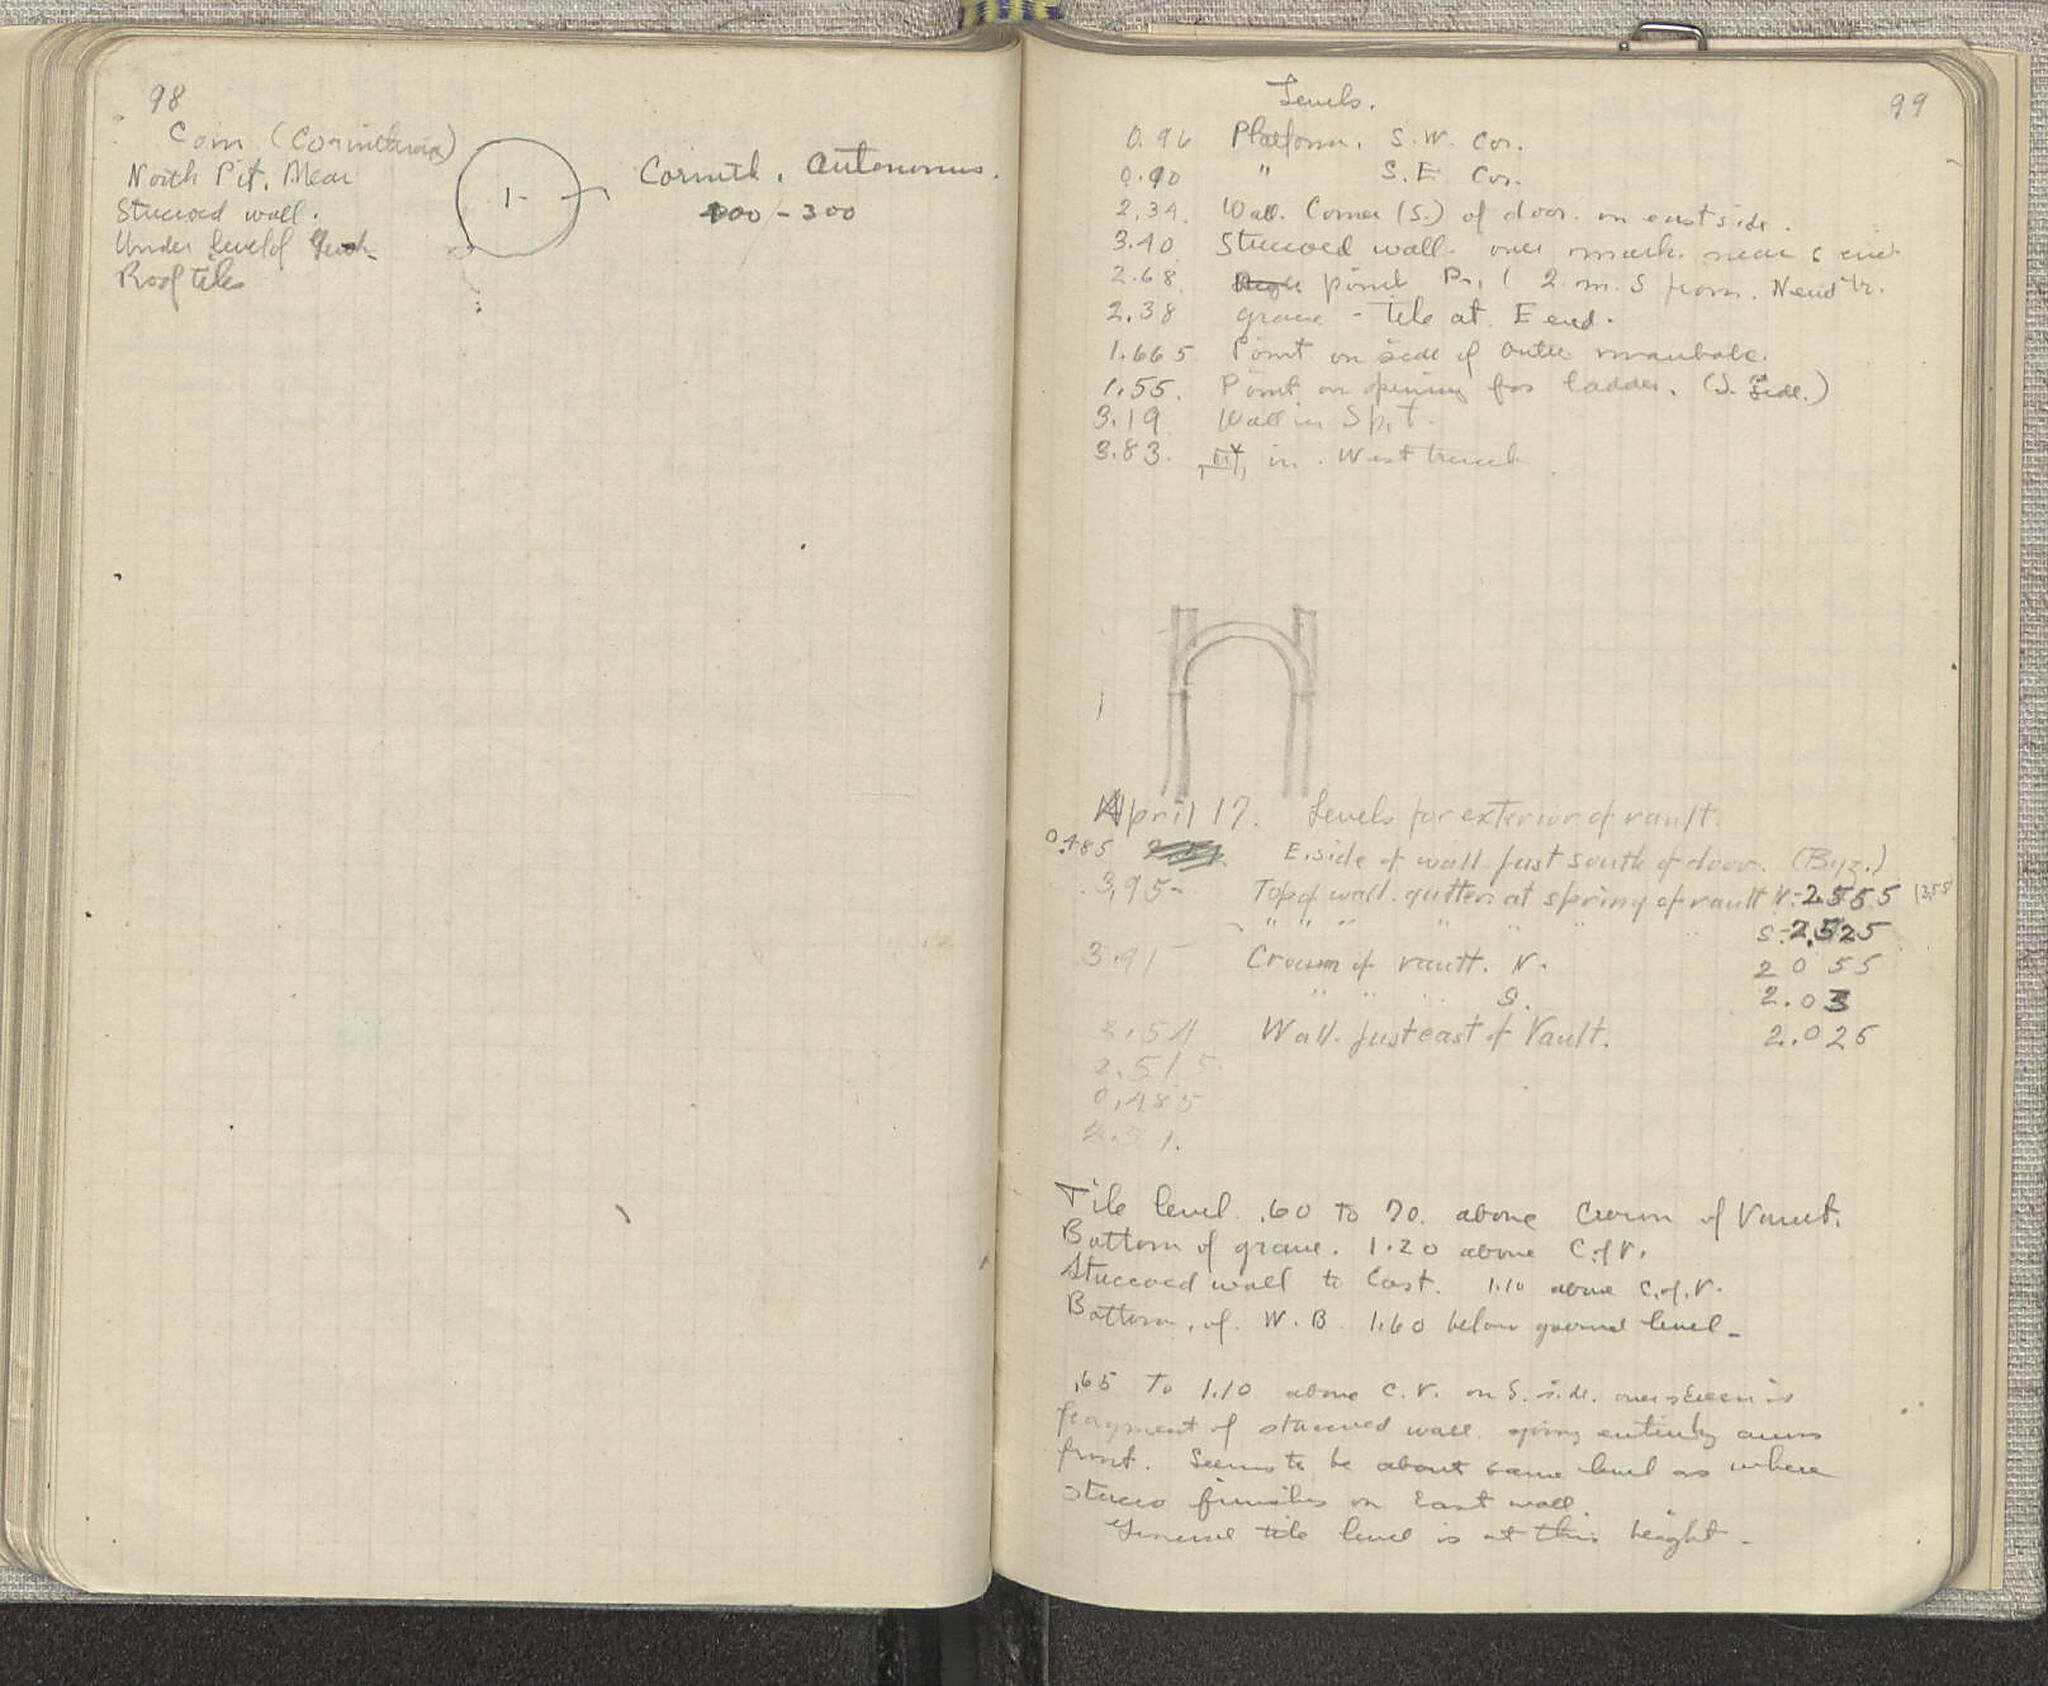 98
Coin (Corinthian)
North Pit, Near
Stuccoed wall.
Under level of
Roof tiles
1-
Corinth, autonomus.
400 - 300
99
Levels.
0.96 Platform, S.W. Cor.
0.90 " S.E. Cor.
2.34. Wall. Corner (S.) of door. on east side.
3.40. Stuccoed wall. over mark near
2.68. point 2 m. S from. N end tr.
2.38 grave - tile at E end.
1.665 Point on side of outer manhole.
1.55. Point on opening for ladder. (S. side.)
3.19 Wall in S pit.
3.83. in West trench
April 17. Levels for exterior of vault.
0.485 E. side of wall just south of door. (Byz.)
3,95- Top of wall. gutter. at spring of vault N.-2.555
" " " " " " S.-2.525
3.91 Crown of vault. N. 2 0 55
" " " S. 2.03
2.54 Wall. just east of Vault. 2.025
2.515
0.485
2.51.
Tile level .60 to 70. above Crown of Vault.
Bottom of grave. 1.20 above C.of V.
Stuccoed wall to East. 1.10 above C.of.V.
Bottom, of. W.B. 1.60 below ground level-
.65 To 1.10 above C.V. on S. side. over is
fragment of stuccoed wall going entirely across
front. Seems to be about same level as where
stucco finishes on East wall.
General tile level is at this height-